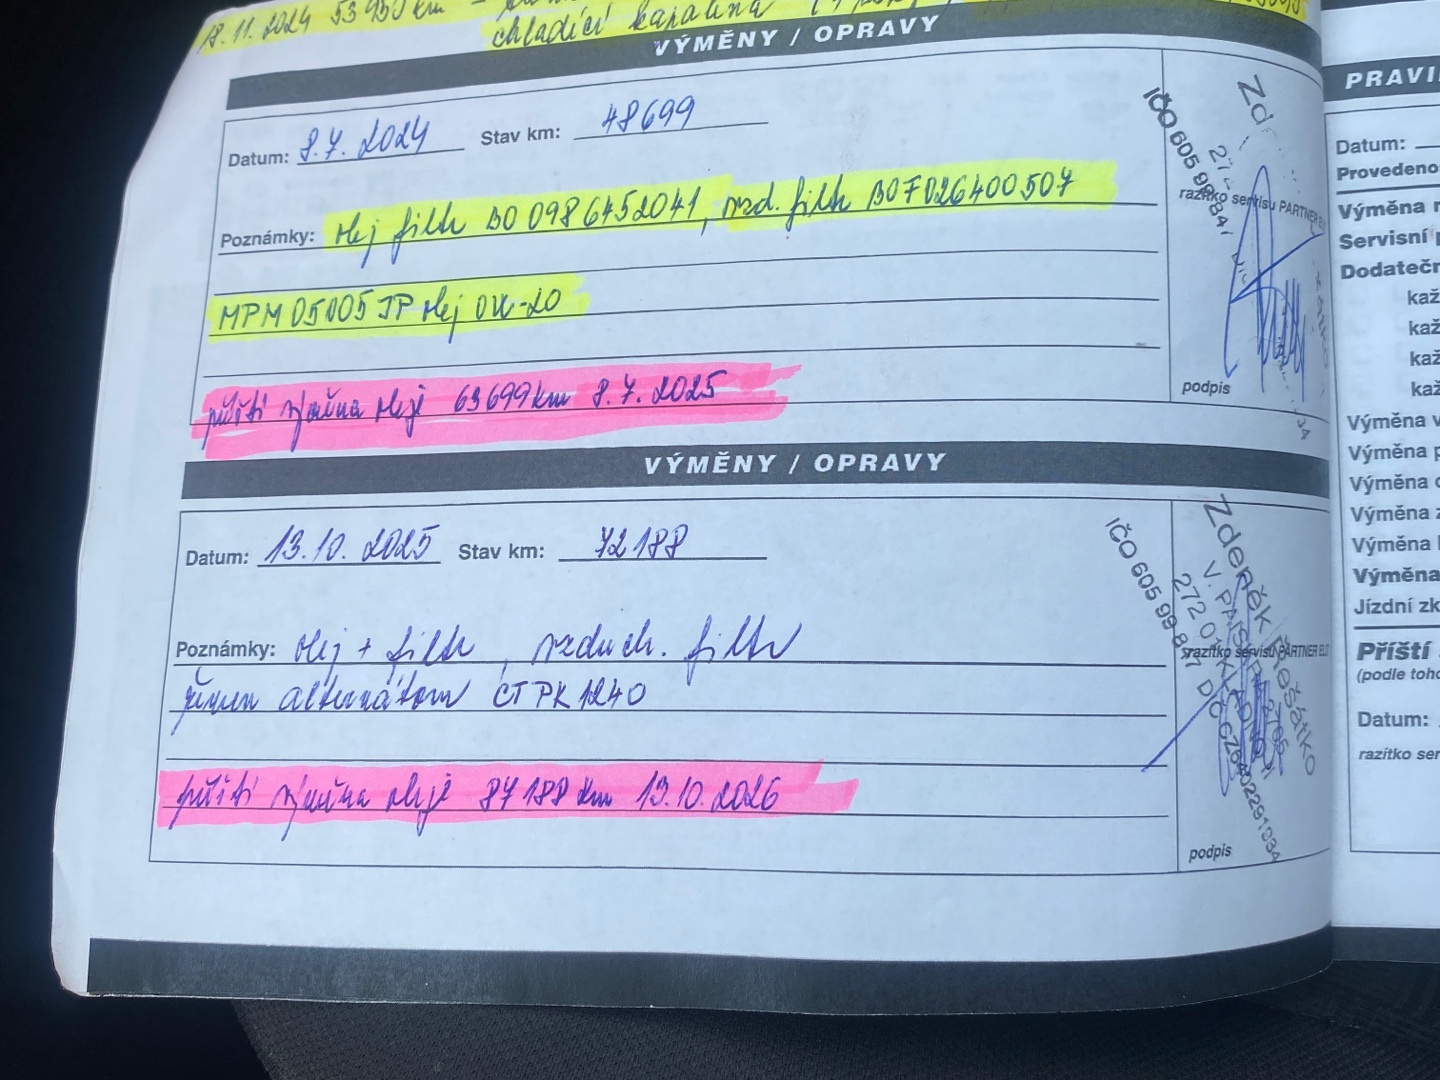 18.11.2024 53950 km -
chladící kapalina
VÝMĚNY / OPRAVY
Datum: 8.7. 2024 Stav km: 48699
Poznámky: olej filtr BO 0986452041, vzd. filtr BOF026400507
MPM05005JP olej 0W-20
příští výměna oleje 63699km 8.7.2025
IČO 605 99 847
razítko servisu PARTNER
podpis
VÝMĚNY / OPRAVY
Datum: 13.10. 2025 Stav km: 72188
Poznámky: olej + filtr, vzduch. filtr
řemen alternátoru CT PK1240
příští výměna oleje 87188 km 13.10.2026
Zdeněk Řešátko
IČO 605 99 847
razítko servisu PARTNER
podpis
Datum:
Provedeno
Výměna
Servisní
Dodatečn
kaž
kaž
kaž
kaž
Výměna v
Výměna p
Výměna
Výměna z
Výměna
Výměna
Jízdní zk
Příští
(podle toho
Datum:
razítko ser